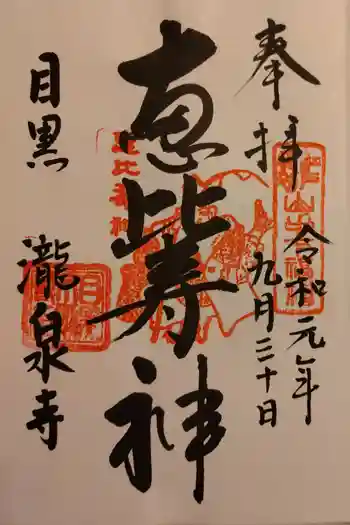 奉拝
令和元年
九月三十日
恵比寿神
目黒
瀧泉寺